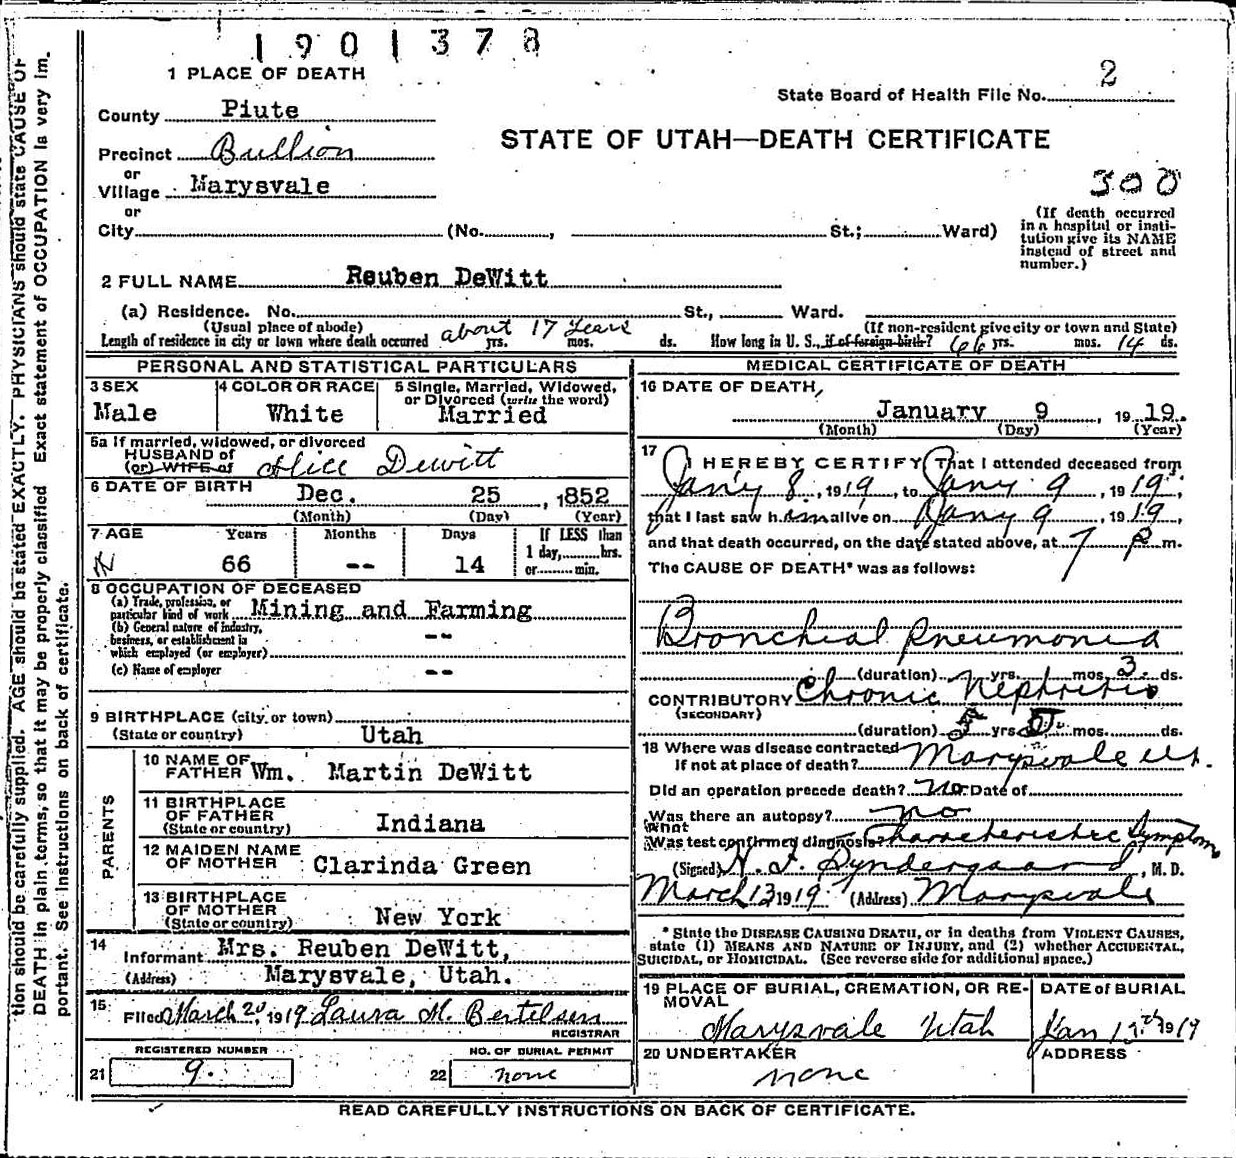 1901378
1 PLACE OF DEATH
2
State Board of Health File No.
County Piute
STATE OF UTAH—DEATH CERTIFICATE
Precinct Bullion
or
Village Marysvale
300
or
City (No. , St.; Ward)
(If death occurred in a hospital or insti-
tution give its NAME
instead of street and
number.)
2 FULL NAME Reuben DeWitt
(a) Residence. No. St., Ward.
(Usual place of abode) (If non-resident give city or town and State)
Length of residence in city or town where death occurred about 17 years yrs. mos. ds. How long in U. S., if of foreign birth? 66 yrs. mos. 14 ds.
PERSONAL AND STATISTICAL PARTICULARS
3 SEX 4 COLOR OR RACE 5 Single, Married, Widowed,
or Divorced (write the word)
Male White Married
5a If married, widowed, or divorced
HUSBAND of
(or) WIFE of Alice Dewitt
6 DATE OF BIRTH Dec. 25 , 1852
(Month) (Day) (Year)
7 AGE Years Months Days If LESS than
1 day, hrs.
or min.
66 -- 14
8 OCCUPATION OF DECEASED
(a) Trade, profession, or
particular kind of work Mining and Farming
(b) General nature of industry,
business, or establishment in
which employed (or employer) --
(c) Name of employer --
9 BIRTHPLACE (city or town)
(State or country) Utah
PARENTS
10 NAME OF
FATHER Wm. Martin DeWitt
11 BIRTHPLACE
OF FATHER
(State or country) Indiana
12 MAIDEN NAME
OF MOTHER Clarinda Green
13 BIRTHPLACE
OF MOTHER
(State or country) New York
14 Informant Mrs. Reuben DeWitt,
(Address) Marysvale, Utah.
15 Filed March 20, 1919 Laura M. Bertelsen
REGISTRAR
REGISTERED NUMBER NO. OF BURIAL PERMIT
21 9. 22 none
MEDICAL CERTIFICATE OF DEATH
16 DATE OF DEATH,
January 9 , 1919.
(Month) (Day) (Year)
17 I HEREBY CERTIFY, That I attended deceased from
Jany 8, 1919, to Jany 9, 1919,
that I last saw him alive on Jany 9, 1919,
and that death occurred, on the date stated above, at 7 P m.
The CAUSE OF DEATH* was as follows:
Bronchial Pneumonia
(duration) yrs. mos. 3 ds.
CONTRIBUTORY Chronic Nephritis
(SECONDARY)
(duration) 5 yrs. mos. ds.
18 Where was disease contracted
If not at place of death? Marysvale Ut.
Did an operation precede death? No Date of
Was there an autopsy? no
What
Was test confirmed diagnosis? Characteristic Symptoms
(Signed) , M. D.
March 13 1919 (Address) Marysvale
* State the DISEASE CAUSING DEATH, or in deaths from VIOLENT CAUSES,
state (1) MEANS AND NATURE OF INJURY, and (2) whether ACCIDENTAL,
SUICIDAL, or HOMICIDAL. (See reverse side for additional space.)
19 PLACE OF BURIAL, CREMATION, OR RE-
MOVAL DATE of BURIAL
Marysvale Utah Jan 1919
20 UNDERTAKER ADDRESS
none
READ CAREFULLY INSTRUCTIONS ON BACK OF CERTIFICATE.
tion should be carefully supplied. AGE should be stated EXACTLY. PHYSICIANS should state CAUSE OF
DEATH in plain terms, so that it may be properly classified. Exact statement of OCCUPATION is very im-
portant. See instructions on back of certificate.